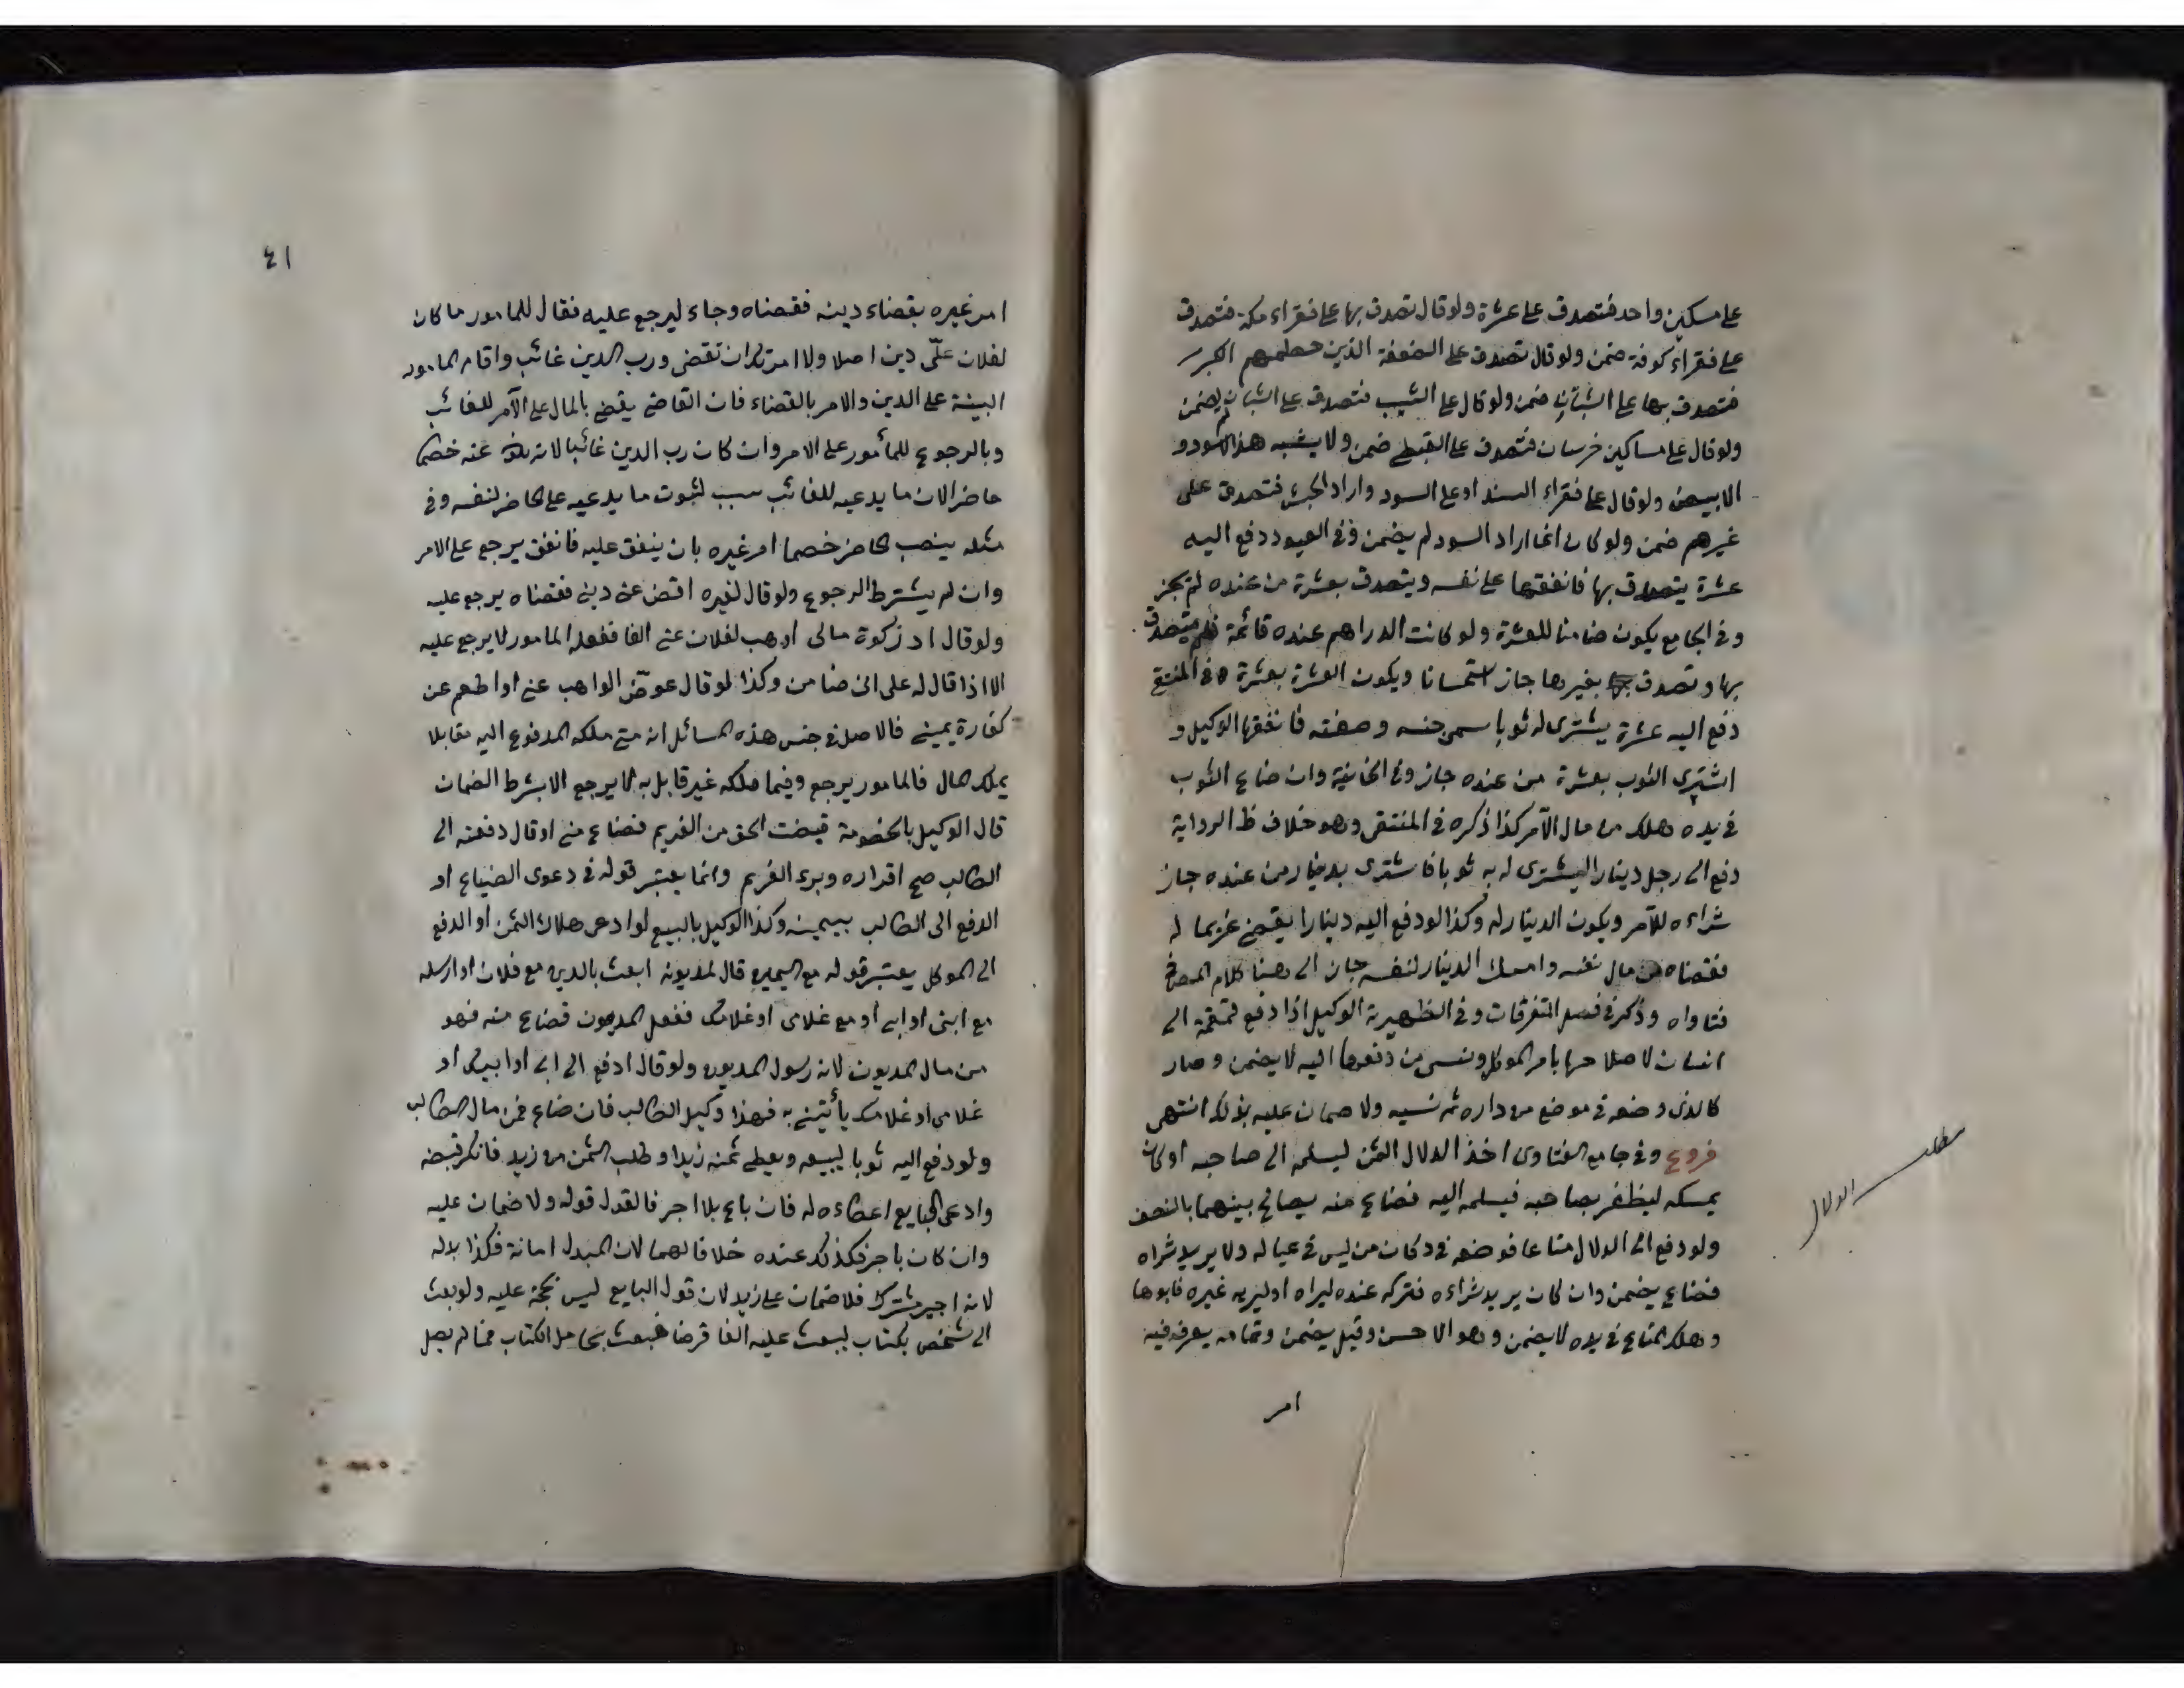 على مسكين واحد فتصدق على عشرة ولو قال تصدق بها على فقراء مكة فتصدق
على فقراء كوفة ضمن ولو قال تصدق على الضعفة الذين حطمهم الكبر
فتصدق بها على الشبان ضمن ولو قال على الشيب فتصدق على الشبان لم يضمن
ولو قال على مساكين خرسان فتصدق على القبطي ضمن ولا يشبه هذا الاسود و
الابيض ولو قال على فقراء السند او على السود واراد الحبش فتصدق على
غيرهم ضمن ولو كان انما اراد السود لم يضمن وفى العيون دفع اليه
عشرة يتصدق بها فانفقها على نفسه ويتصدق بعشرة من عنده لم يجز
وفى الجامع يكون ضامنا للعشرة ولو كانت الدراهم عنده قائمة فلم يتصدق
بها وتصدق بغيرها جاز استحسانا ويكون العشرة بعشرة وفى المنتقى
دفع اليه عشرة يشترى له ثوبا سمى جنسه وصفته فانفقها الوكيل و
اشترى الثوب بعشرة من عنده جاز وفى الخانية وان ضاع الثوب
فى يده وهلك من مال الآمر كذا ذكره فى المنتقى وهو خلاف ظ الرواية
دفع الى رجل دينارا ليشترى له به ثوبا فاشترى بدينار من عنده جاز
شراءه للآمر ويكون الدينار له وكذا لو دفع اليه دينارا يقضى غريما له
فقضاه من مال نفسه وامسك الدينار لنفسه جاز الى هنا كلام المص فى
فتاواه وذكر فى فصل المتفرقات وفى الظهيرية الوكيل اذا دفع قمقمة الى
انسان لاصلاحها بامر الموكل ونسى من دفعها اليه لا يضمن وصار
كالذى وضعه فى موضع من داره ثم نسيه ولا ضمان عليه بذلك انتهى
فروع وفى جامع الفتاوى اخذ الدلال الثمن ليسلمه الى صاحبه او كان
يمسكه ليظفر بصاحبه فيسلمه اليه فضاع منه يصالح بينهما بالنصف
ولو دفع الى الدلال متاعا فوضعه فى دكان من ليس فى عياله ولا يريد شراه
فضاع يضمن وان كان يريد شراءه فتركه عنده ليراه او ليريه غيره
وهلك المتاع فى يده لا يضمن وهو الاحسن وقيل يضمن وتمامه يعرف فيه
امر
مطلب الدلال
٤١
امر غيره بقضاء دينه فقضاه وجاء ليرجع عليه فقال للمامور ما كان
لفلان علىّ دين اصلا ولا امرتك ان تقضى ورب الدين غائب واقام المامور
البينة على الدين والامر بالقضاء فان القاضى يقضى بالمال على الآمر للغائب
وبالرجوع للمأمور على الامر وان كان رب الدين غائبا لان عنه خصما
حاضرا لان ما يدعيه للغائب سبب لثبوت ما يدعيه على الحاضر لنفسه وفى
مثله ينصب الحاضر خصما امر غيره بان ينفق عليه فانفق يرجع على الامر
وان لم يشترط الرجوع ولو قال لغيره اقض عنى دينى فقضاه يرجع عليه
ولو قال اد زكوة مالى او هب لفلان عنى الفا ففعله المامور لا يرجع عليه
الا اذا قال له على انى ضامن وكذا لو قال عوض الواهب عنى او اطعم عن
كفارة يمينى فالاصل فى جنس هذه المسائل انه متى ملكه المدفوع اليه مقابلا
بملك مال فالمامور يرجع وفيما ملكه غير قابل به لا يرجع الا بشرط الضمان
قال الوكيل بالخصومة قبضت الحق من الغريم فضاع منى او قال دفعته الى
الطالب صح اقراره وبرء الغريم وانما يعتبر قوله فى دعوى الضياع او
الدفع الى الطالب بيمينه وكذا الوكيل بالبيع لو ادعى هلاك الثمن او الدفع
الى الموكل يعتبر قوله مع اليمين قال لمديونه ابعث بالدين مع فلان او ارسله
مع ابنى او ابى او مع غلامى او غلامك ففعل المديون فضاع منه فهو
من مال المديون لانه رسول المديون ولو قال ادفع الى ابنى او ابيك او
غلامى او غلامك يأتينى به فهذا وكيل الطالب فان ضاع فمن مال الطالب
ولو دفع اليه ثوبا ليبيعه ويعطى ثمنه زيدا وطلب الثمن من زيد فانكر قبضه
وادعى البايع اعطاءه له فان باع بلا اجر فالقول قوله ولا ضمان عليه
وان كان باجر فكذلك عنده خلافا لهما لان المبدل امانة فكذا بدله
لانه اجير مشترك فلا ضمان على زيد لان قول البايع ليس بحجة عليه ولو بعث
الى شخص بكتاب ليبعث عليه الفا قرضا فبعث بحامل الكتاب فما لم يصل